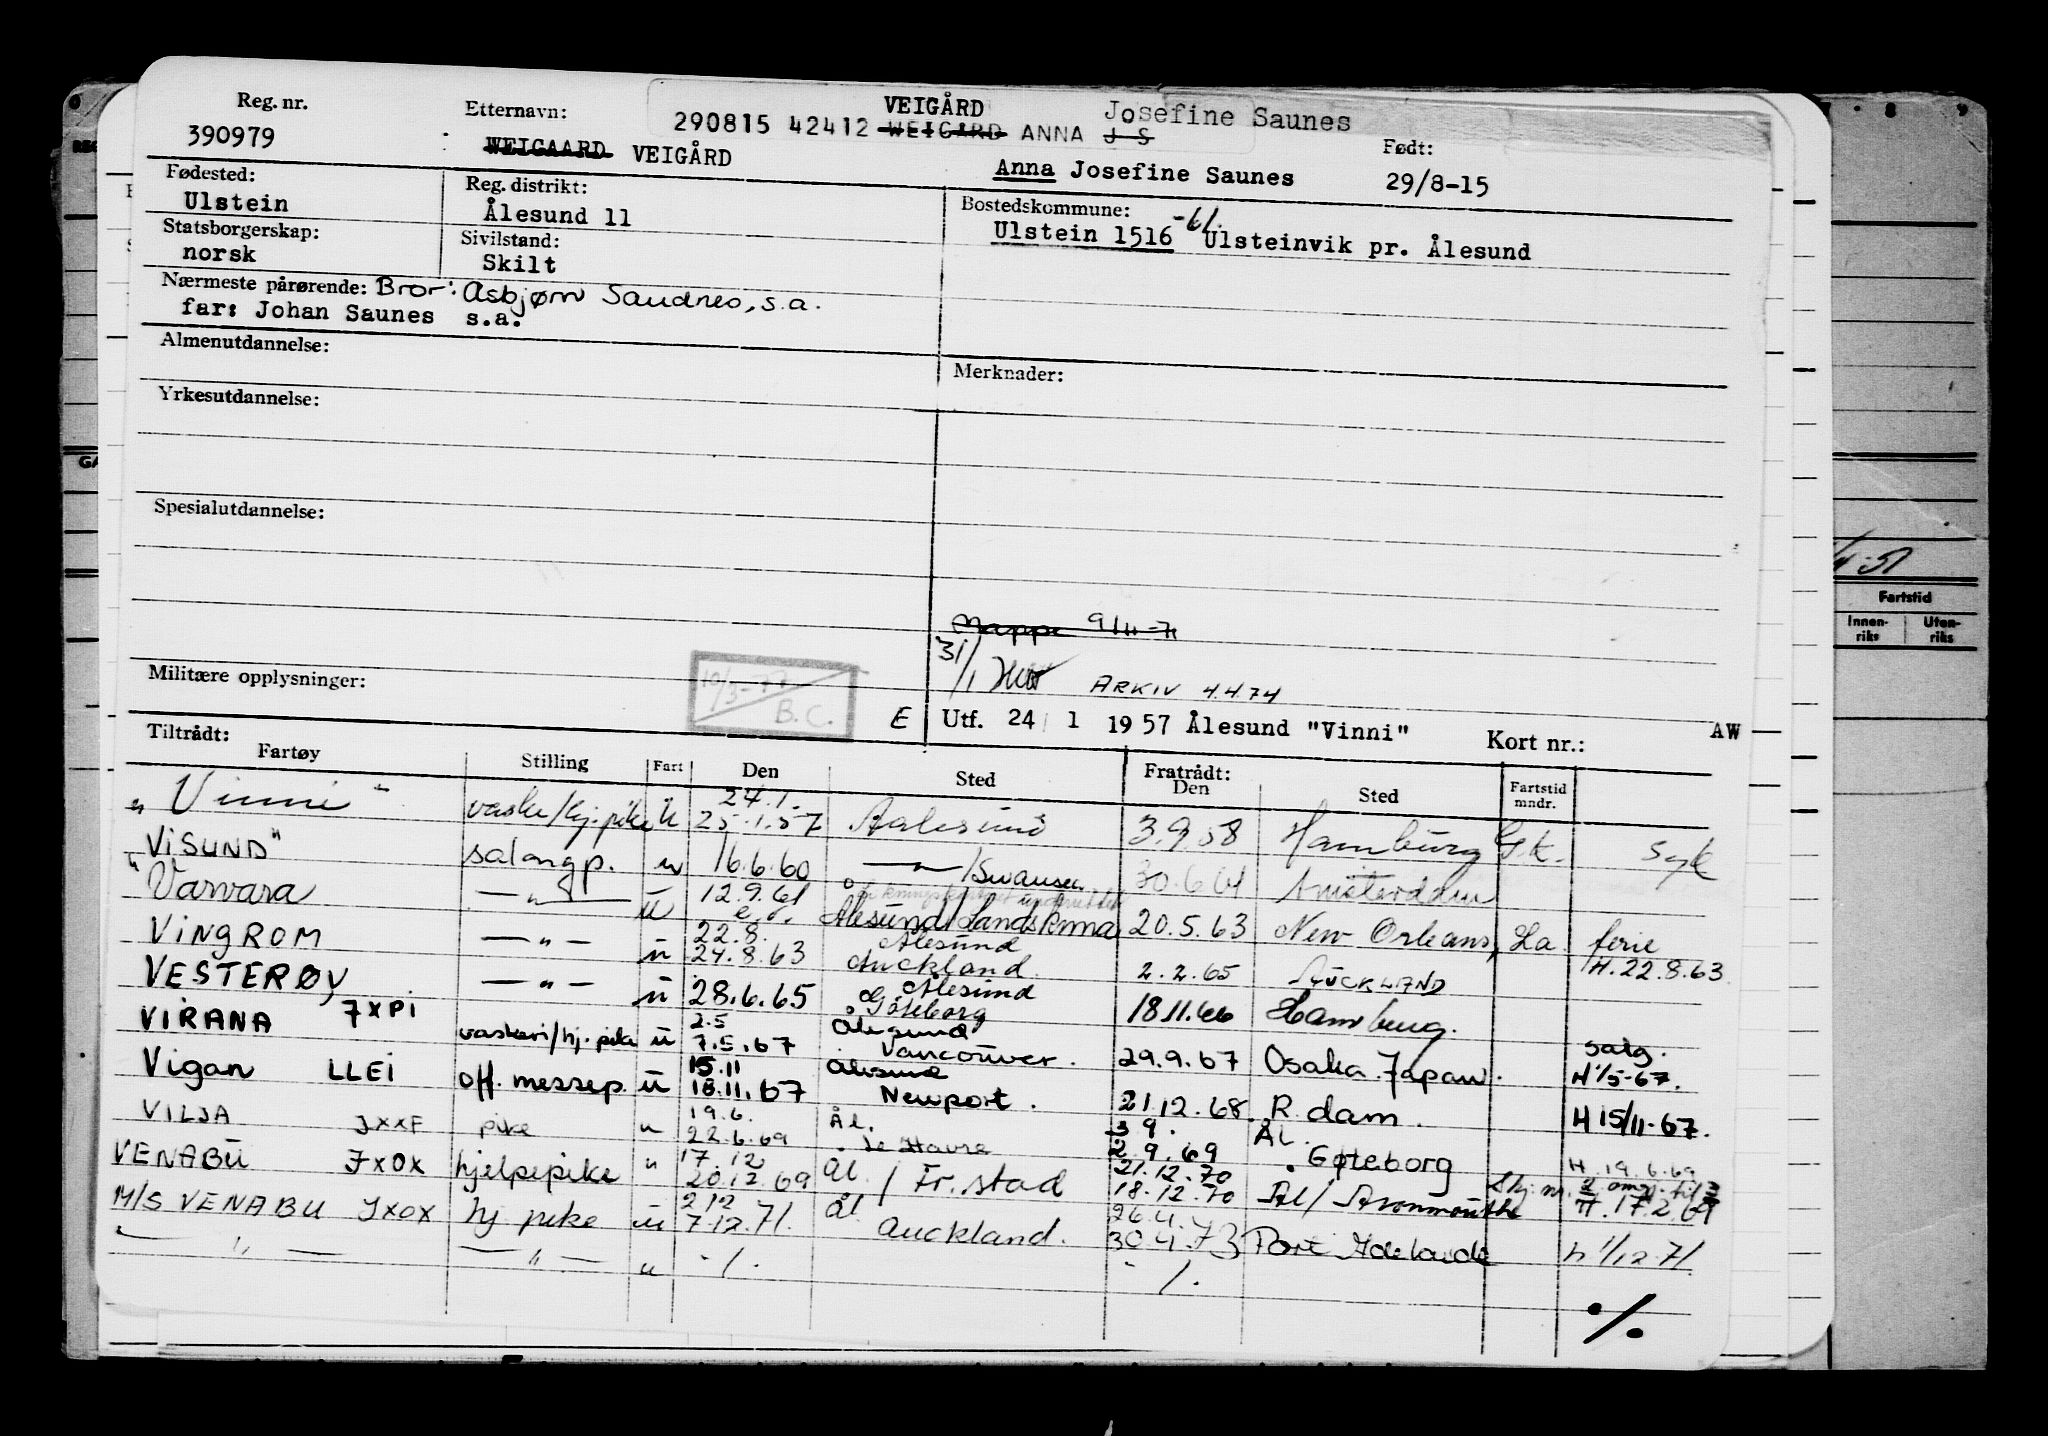 Reg. nr. Etternavn: 290815 42412 VEIGÅRD WEIGARD ANNA J S Josefine Saunes
390979 WEIGAARD VEIGÅRD Anna Josefine Saunes Født: 29/8-15
Fødested: Reg. distrikt: Bostedskommune:
Ulstein Ålesund 11 Ulstein 1516 -61. Ulsteinvik pr. Ålesund
Statsborgerskap: Sivilstand:
norsk Skilt
Nærmeste pårørende: Bror: Asbjørn Saudnes, s.a.
far: Johan Saunes s.a.
Almenutdannelse:
Merknader:
Yrkesutdannelse:
Spesialutdannelse:
Mappe 9/11-71
31/1 ARKIV 4.4.74
Militære opplysninger: 10/3-77 B.C.
E Utf. 24 1 1957 Ålesund "Vinni" Kort nr.: AW
Tiltrådt: Fratrådt:
Fartøy Stilling Fart Den Sted Den Sted Fartstid mndr.
"Vinni" vaske/hj.pike u 24.1. 25.1.57 Aalesund 3.9.58 Hamburg G.k. syk
"VISUND" salongp. u 16.6.60 — " — /Swansea 30.6.61 Amsterdam
"Varvara — " — u 12.9.61 e.o. Ålesund/Landskrona 20.5.63 New Orleans, La. ferie
VINGROM — " — u 22.8. 24.8.63 Ålesund Auckland 2.2.65 AUCKLAND H. 22.8.63
VESTERØY — " — u 28.6.65 Ålesund Göteborg 18.11.66 Hamburg.
VIRANA JXPI vaskeri/hj.pike u 2.5 7.5.67 Ålesund Vancouver. 29.9.67 Osaka Japan. salg. H 1/5-67.
Vigan LLEI off. messep. u 15.11 18.11.67 Ålesund Newport. 21.12.68. R.dam. H 15/11-67.
VILJA JXXF pike u 19.6. 22.6.69 Ål. Le Havre 3 9. 2.9.69 ÅL. Gøteborg H. 19.6.69
VENABU JXOX hjelpepike u 17.12 20.12.69 Ål / Fr.stad 21.12.70 18.12.70 Ål/ Avonmouth H. 17.2.69
M/S VENABU JXOX hj pike u 2 12 7.12.71. Ål. Auckland. 26.4. 30.4.73 Port Adelaide h 1/12.71.
— " — — " — u ./. ./.
./.
/4-51
Fartstid
Innen-riks Uten-riks